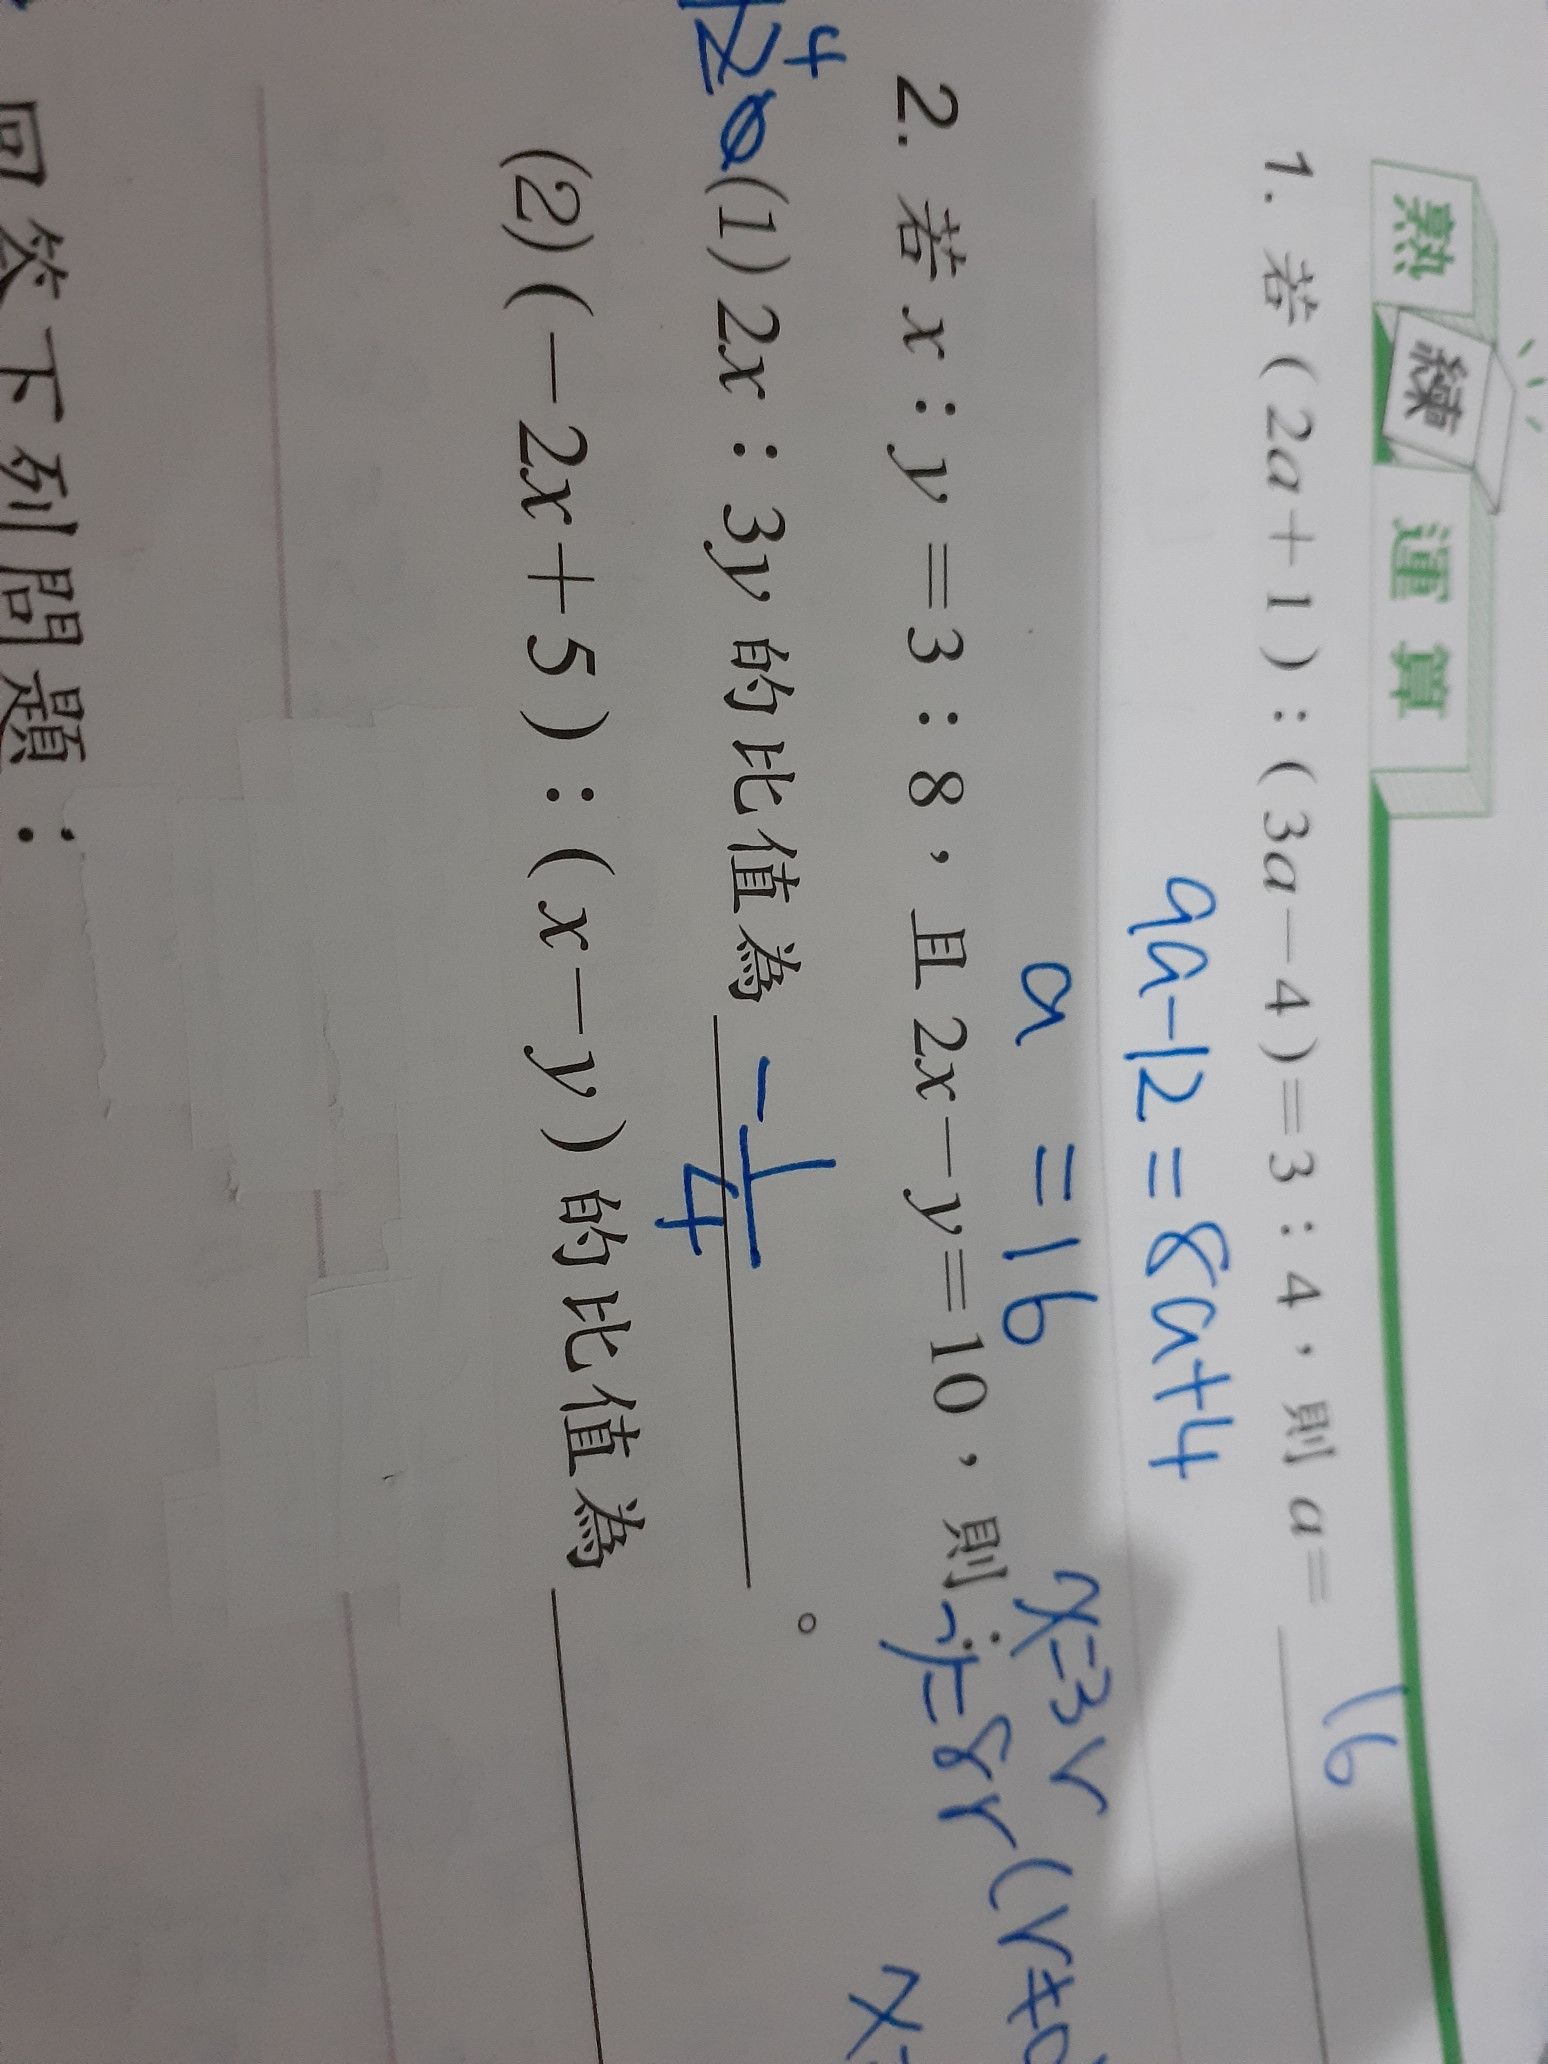 熟練運算
1. 若(2a+1):(3a-4)=3:4，則 a= 16
9a-12=8a+4
a =16
x=3r
2. 若 x:y=3:8，且 2x-y=10，則:
y=8r(r≠0
x=
4
(1) 2x:3y 的比值為 -1/4 。
(2)(-2x+5):(x-y)的比值為
回答下列問題: